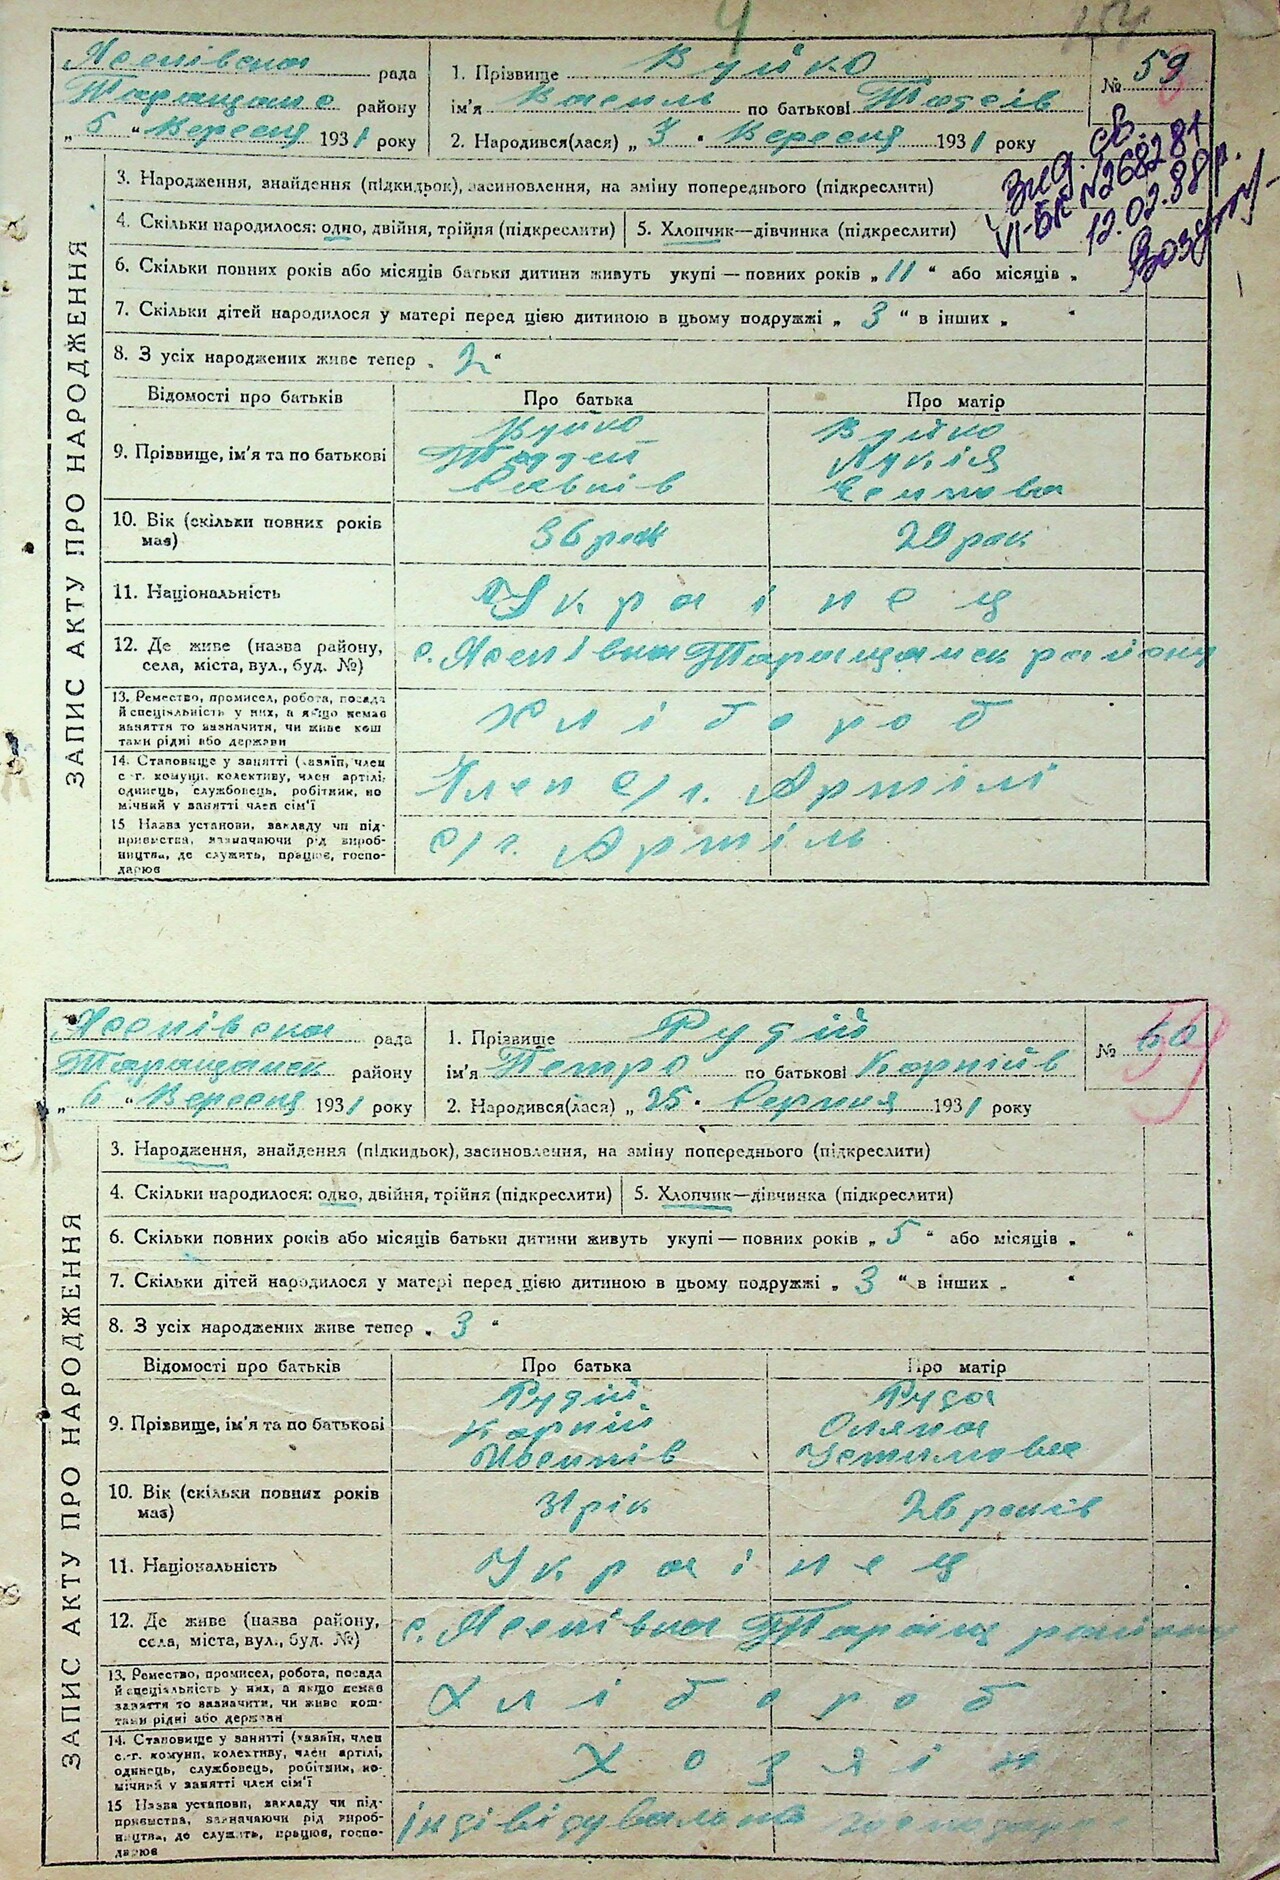 4
154
Лесівска рада
Таращанс району
„ 5 “ Вересня 1931 року
1. Прізвище Вуйко
ім'я Василь по батькові Тодеїв
2. Народився(лася) „ 3 “ Вересня 1931 року
№ 59
Вид. св.
VI-БК № 268281
12.02.88 р.
ЗАПИС АКТУ ПРО НАРОДЖЕННЯ
3. Народження, знайдення (підкидьок), засиновлення, на зміну попереднього (підкреслити)
4. Скільки народилося: одно, двійня, трійня (підкреслити)
5. Хлопчик—дівчинка (підкреслити)
6. Скільки повних років або місяців батьки дитини живуть укупі — повних років „ 11 “ або місяців „
7. Скільки дітей народилося у матері перед цією дитиною в цьому подружжі „ 3 “ в інших „ “
8. З усіх народжених живе тепер „ 2 “
Відомості про батьків
Про батька
Про матір
9. Прізвище, ім'я та по батькові
Вуйко
Тодей
Вуйко
Лукія
10. Вік (скільки повних років має)
36 рок
29 рок
11. Національність
Українец
12. Де живе (назва району, села, міста, вул., буд. №)
с. Лесівка Таращанск району
13. Ремество, промисел, робота, посада
й спеціяльність у них, а якщо немає
заняття то зазначити, чи живе кош
тами рідні або держави
Хлібороб
14. Становище у занятті (хазяїн, член
с.-г. комуни, колективу, член артілі,
одинець, службовець, робітник, по
мічний у занятті член сім'ї
Член с/г. Артілі
15 Назва установи, закладу чи під-
приємства, зазначаючи рід вироб-
ництва, де служить, працює, госпо-
дарює
с/г. Артіль
Лесівска рада
Таращанск району
„ 6 “ Вересня 1931 року
1. Прізвище Рудій
ім'я Петро по батькові Корнійв
2. Народився(лася) „ 25 “ Серпня 1931 року
№ 60
59
ЗАПИС АКТУ ПРО НАРОДЖЕННЯ
3. Народження, знайдення (підкидьок), засиновлення, на зміну попереднього (підкреслити)
4. Скільки народилося: одно, двійня, трійня (підкреслити)
5. Хлопчик—дівчинка (підкреслити)
6. Скільки повних років або місяців батьки дитини живуть укупі — повних років „ 5 “ або місяців „ “
7. Скільки дітей народилося у матері перед цією дитиною в цьому подружжі „ 3 “ в інших „ “
8. З усіх народжених живе тепер „ 3 “
Відомості про батьків
Про батька
Про матір
9. Прізвище, ім'я та по батькові
Рудій
Корній
Йосипів
Руда
Оляна
Устимовна
10. Вік (скільки повних років має)
31 рік
26 років
11. Національність
Українец
12. Де живе (назва району, села, міста, вул., буд. №)
с. Лесівка Таращ району
13. Ремество, промисел, робота, посада
й спеціяльність у них, а якщо немає
заняття то зазначити, чи живе кош-
тами рідні або держави
Хлібороб
14. Становище у занятті (хазяїн, член
с.-г. комуни, колективу, член артілі,
одинець, службовець, робітник, по-
мічний у занятті член сім'ї
Хозяїн
15 Назва установи, закладу чи під-
приємства, зазначаючи рід вироб-
ництва, де служить, працює, госпо-
дарює
індівідувальне